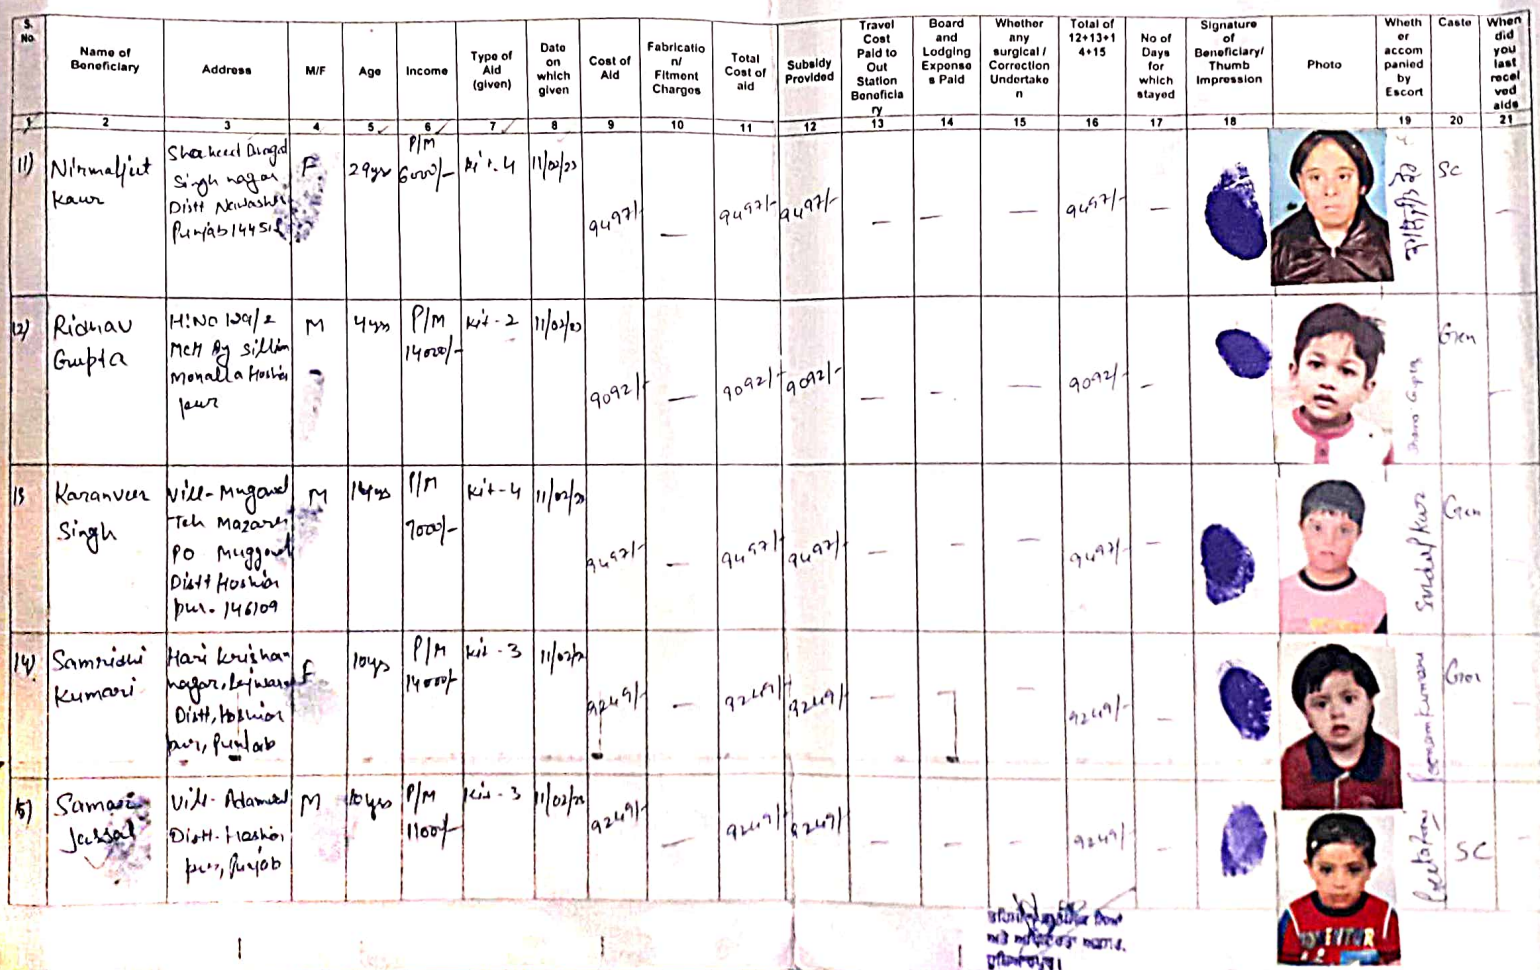 S. No.
Name of Beneficiary
Address
M/F
Age
Income
Type of Aid (given)
Date on which given
Cost of Aid
Fabricatio n/ Fitment Charges
Total Cost of aid
Subsidy Provided
Travel Cost Paid to Out Station Beneficia ry
Board and Lodging Expense s Paid
Whether any surgical / Correction Undertake n
Total of 12+13+1 4+15
No of Days for which stayed
Signature of Beneficiary/ Thumb Impression
Photo
Wheth er accom panied by Escort
Caste
When did you last recei ved aids
1 2 3 4 5 6 7 8 9 10 11 12 13 14 15 16 17 18 19 20 21
11) Nirmaljeet Kaur
Shaheed Bhagat
Singh nagar
Distt Nawashe
Punjab 14451
F 29yrs P/M 6000/- Kit-4 11/02/23 9497/- — 9497/- 9497/- — — — 9497/- — SC —
12) Ridhav Gupta
H.No 129/2
Mohalla Hoshia
pur
M 4yrs P/M 14000/- Kit-2 11/02/23 9092/- — 9092/- 9092/- — — — 9092/- — Gen —
13 Karanveer Singh
Vill- Mugowal
Teh Mazara
PO Muggowal
Distt Hoshiar
pur. 146109
M 14yrs P/M 7000/- Kit-4 11/02/23 9497/- — 9497/- 9497/- — — — 9497/- — Gen
14) Samridhi Kumari
Hari Krishan
nagar,
Distt, Hoshiar
pur, Punjab
F 10yrs P/M 14000/- Kit-3 11/02/2 9249/- — 9249/- 9249/- — — 9249/- — Poonam Kumari Gen —
15) Jassal
Vill- Adamwal
Distt- Hoshiar
pur, Punjab
M 10yrs P/M 1100/- Kit-3 11/02/23 9249/- — 9249/- 9249/- — — — 9249/- — SC —